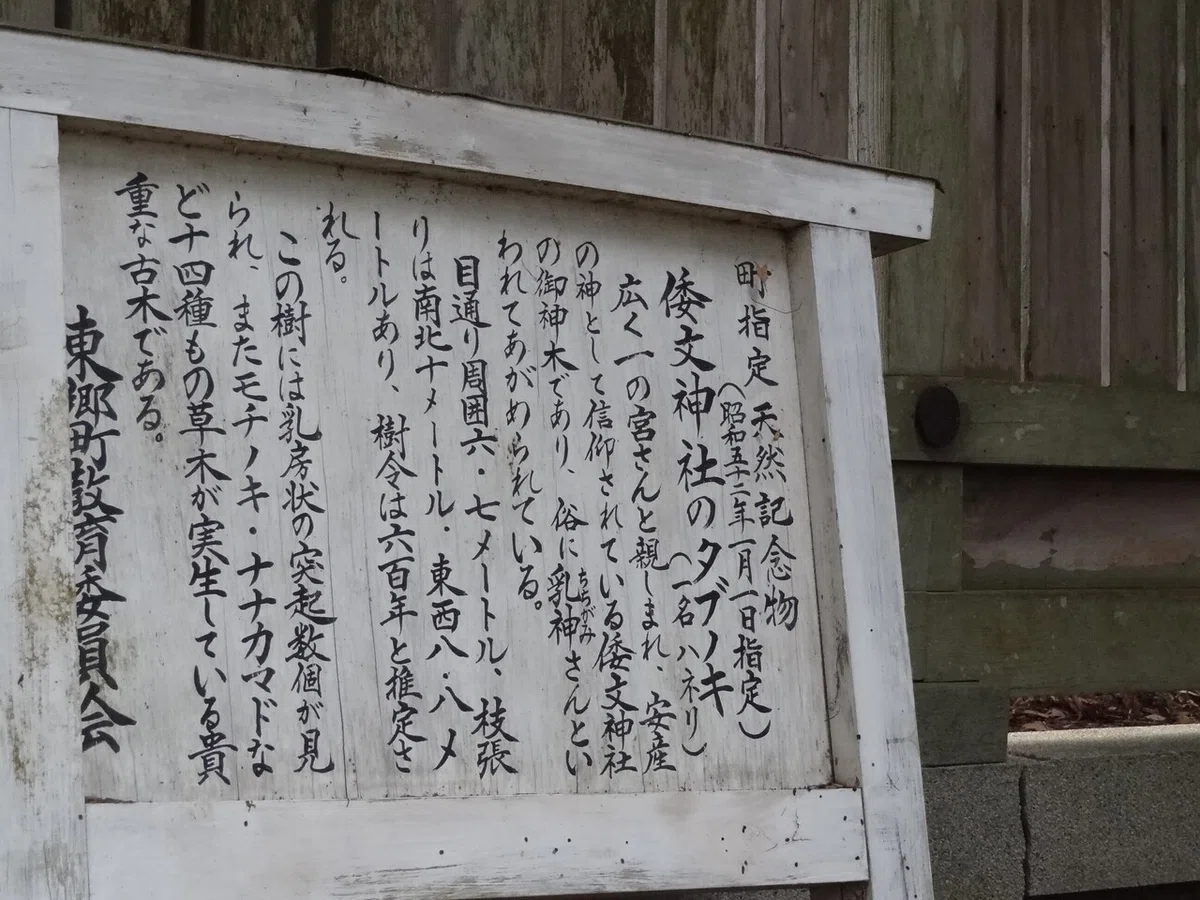 町指定天然記念物
(昭和五十二年一月一日指定)
倭文神社のタブノキ
(一名ハネリ)
広く一の宮さんと親しまれ、安産
の神として信仰されている倭文神社
の御神木であり、俗に乳神さんとい
ちちがみ
われてあがめられている。
目通り周囲六・七メートル、枝張
りは南北十メートル・東西八・八メ
ートルあり、樹令は六百年と推定さ
れる。
この樹には乳房状の突起数個が見
られ、またモチノキ・ナナカマドな
ど十四種もの草木が実生している貴
重な古木である。
東郷町教育委員会